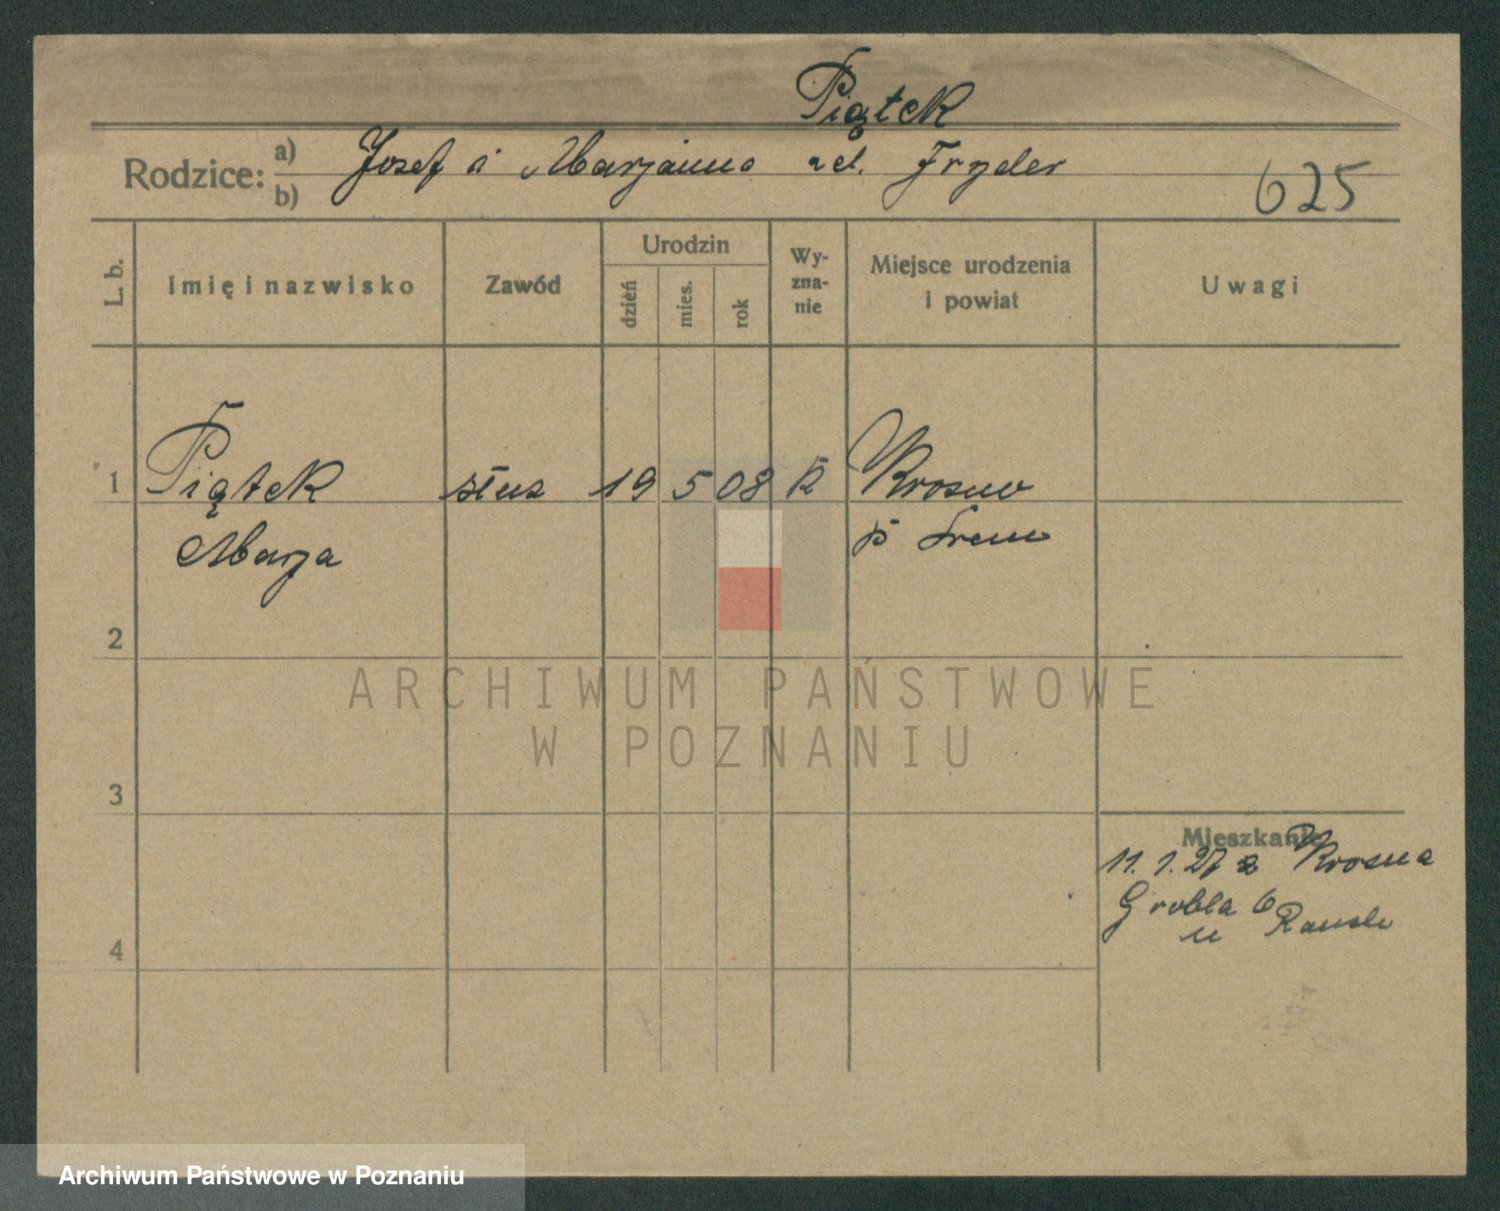 Piątek
Rodzice: a) b) Josef i Marjanna zd. Fryder
625
L. b. Imię i nazwisko Zawód Urodzin dzień mies. rok Wyznanie Miejsce urodzenia i powiat Uwagi
1 Piątek służ 19 5 08 k Krosno
Marja p Śrem
2
ARCHIWUM PAŃSTWOWE
W POZNANIU
3
Mieszkanie
11. 1. 27 z Krosna
Grobla 6
4
u
Archiwum Państwowe w Poznaniu